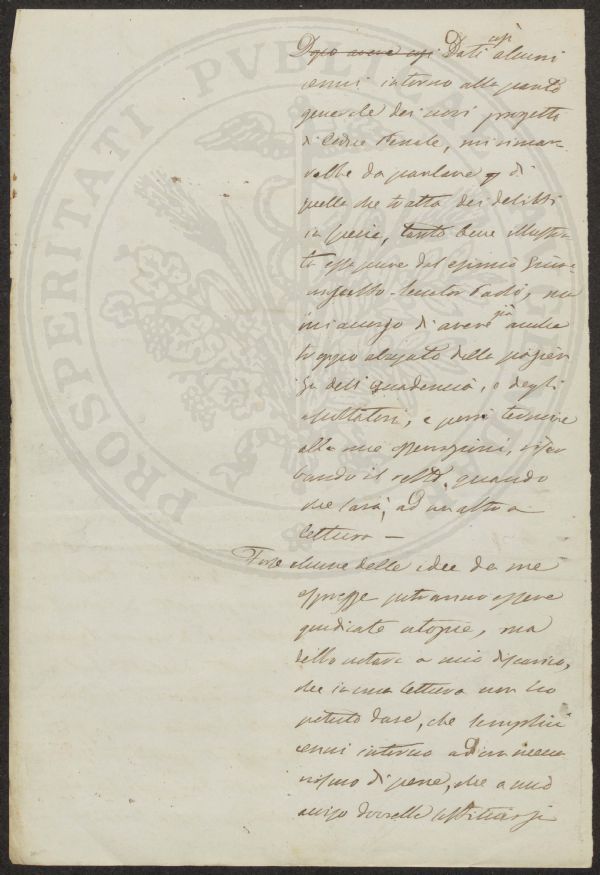 PROSPERITATI PUBLICAE AUGENDAE
Dopo avere così Dati così alcuni
cenni intorno alla parte
generale dei nuovi progetti
di Codice Penale, mi rimar-
rebbe da parlare di
quella che tratta dei delitti
in specie, tanto bene illustra-
ta essa pure dal esimio Giure-
consulto Senator Paoli, ma
mi accorgo di avere già anche
troppo abusato della pazien
za dell' Accademia, e degli
ascoltatori, e porrò termine
alle mie osservazioni, riser
bando il resto, quando
che sarà, ad un altra
lettura —
Forse alcune delle idee da me
espresse potranno essere
giudicate utopie, ma
debbo notare a mio discarico,
che in una lettura non ho
potuto dare, che semplici
cenni intorno ad un mecca
nismo di pene, che a mio
avviso dovrebbe sostituirsi